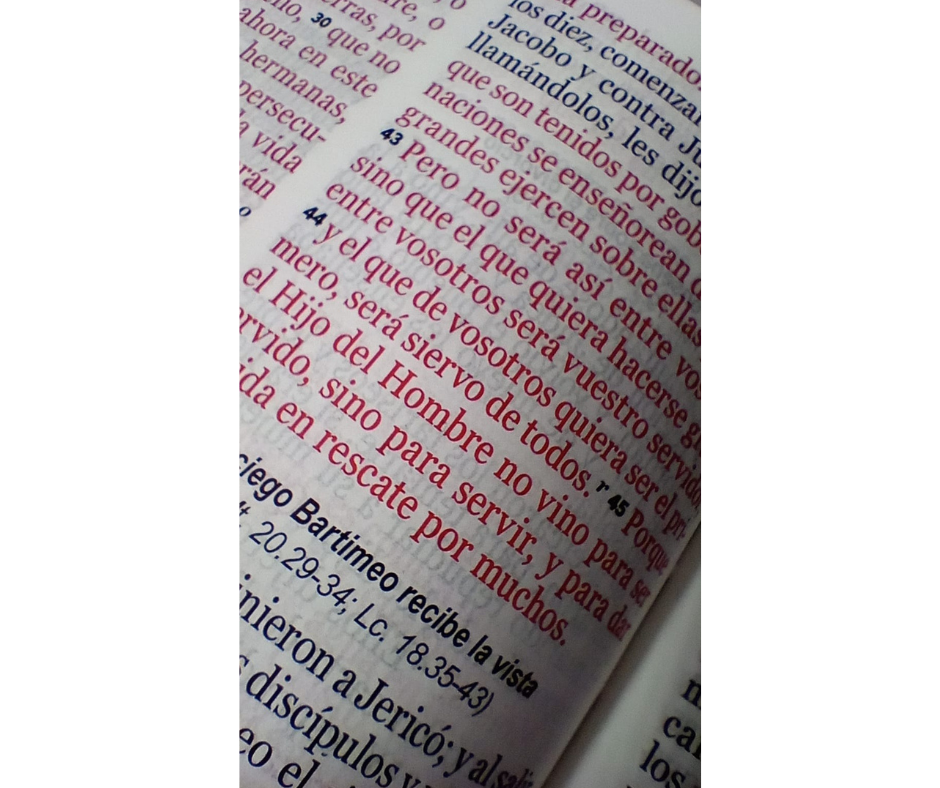 o
re, o
rras, por
no, 30 que no
ahora en este
hermanas,
persecu-
vida
rán
o
preparado
los diez, comenza
Jacobo y contra Ju
llamándolos, les dijo
que son tenidos por gob
naciones se enseñorean
grandes ejercen sobre ellas
43 Pero no será así entre vos
sino que el que quiera hacerse g
entre vosotros será vuestro servido
44 y el que de vosotros quiera ser el pri-
mero, será siervo de todos. r 45 Porque
el Hijo del Hombre no vino para ser
rvido, sino para servir, y para dar
ida en rescate por muchos.
ciego Bartimeo recibe la vista
20.29-34; Lc. 18.35-43)
inieron a Jericó; y al salir
discípulos y
eo el
ca
los